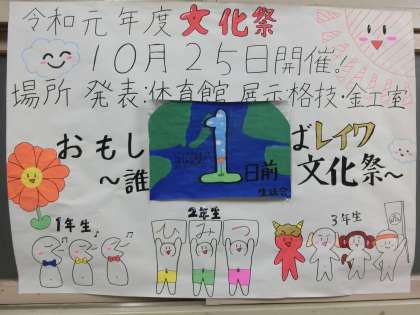 令和元年度文化祭
10月25日開催!
場所 発表:体育館 展示:格技・金工室
おもし
ばレイワ
~誰
文化祭~
1
日前
生徒会
1年生
2年生
3年生
ひみつ